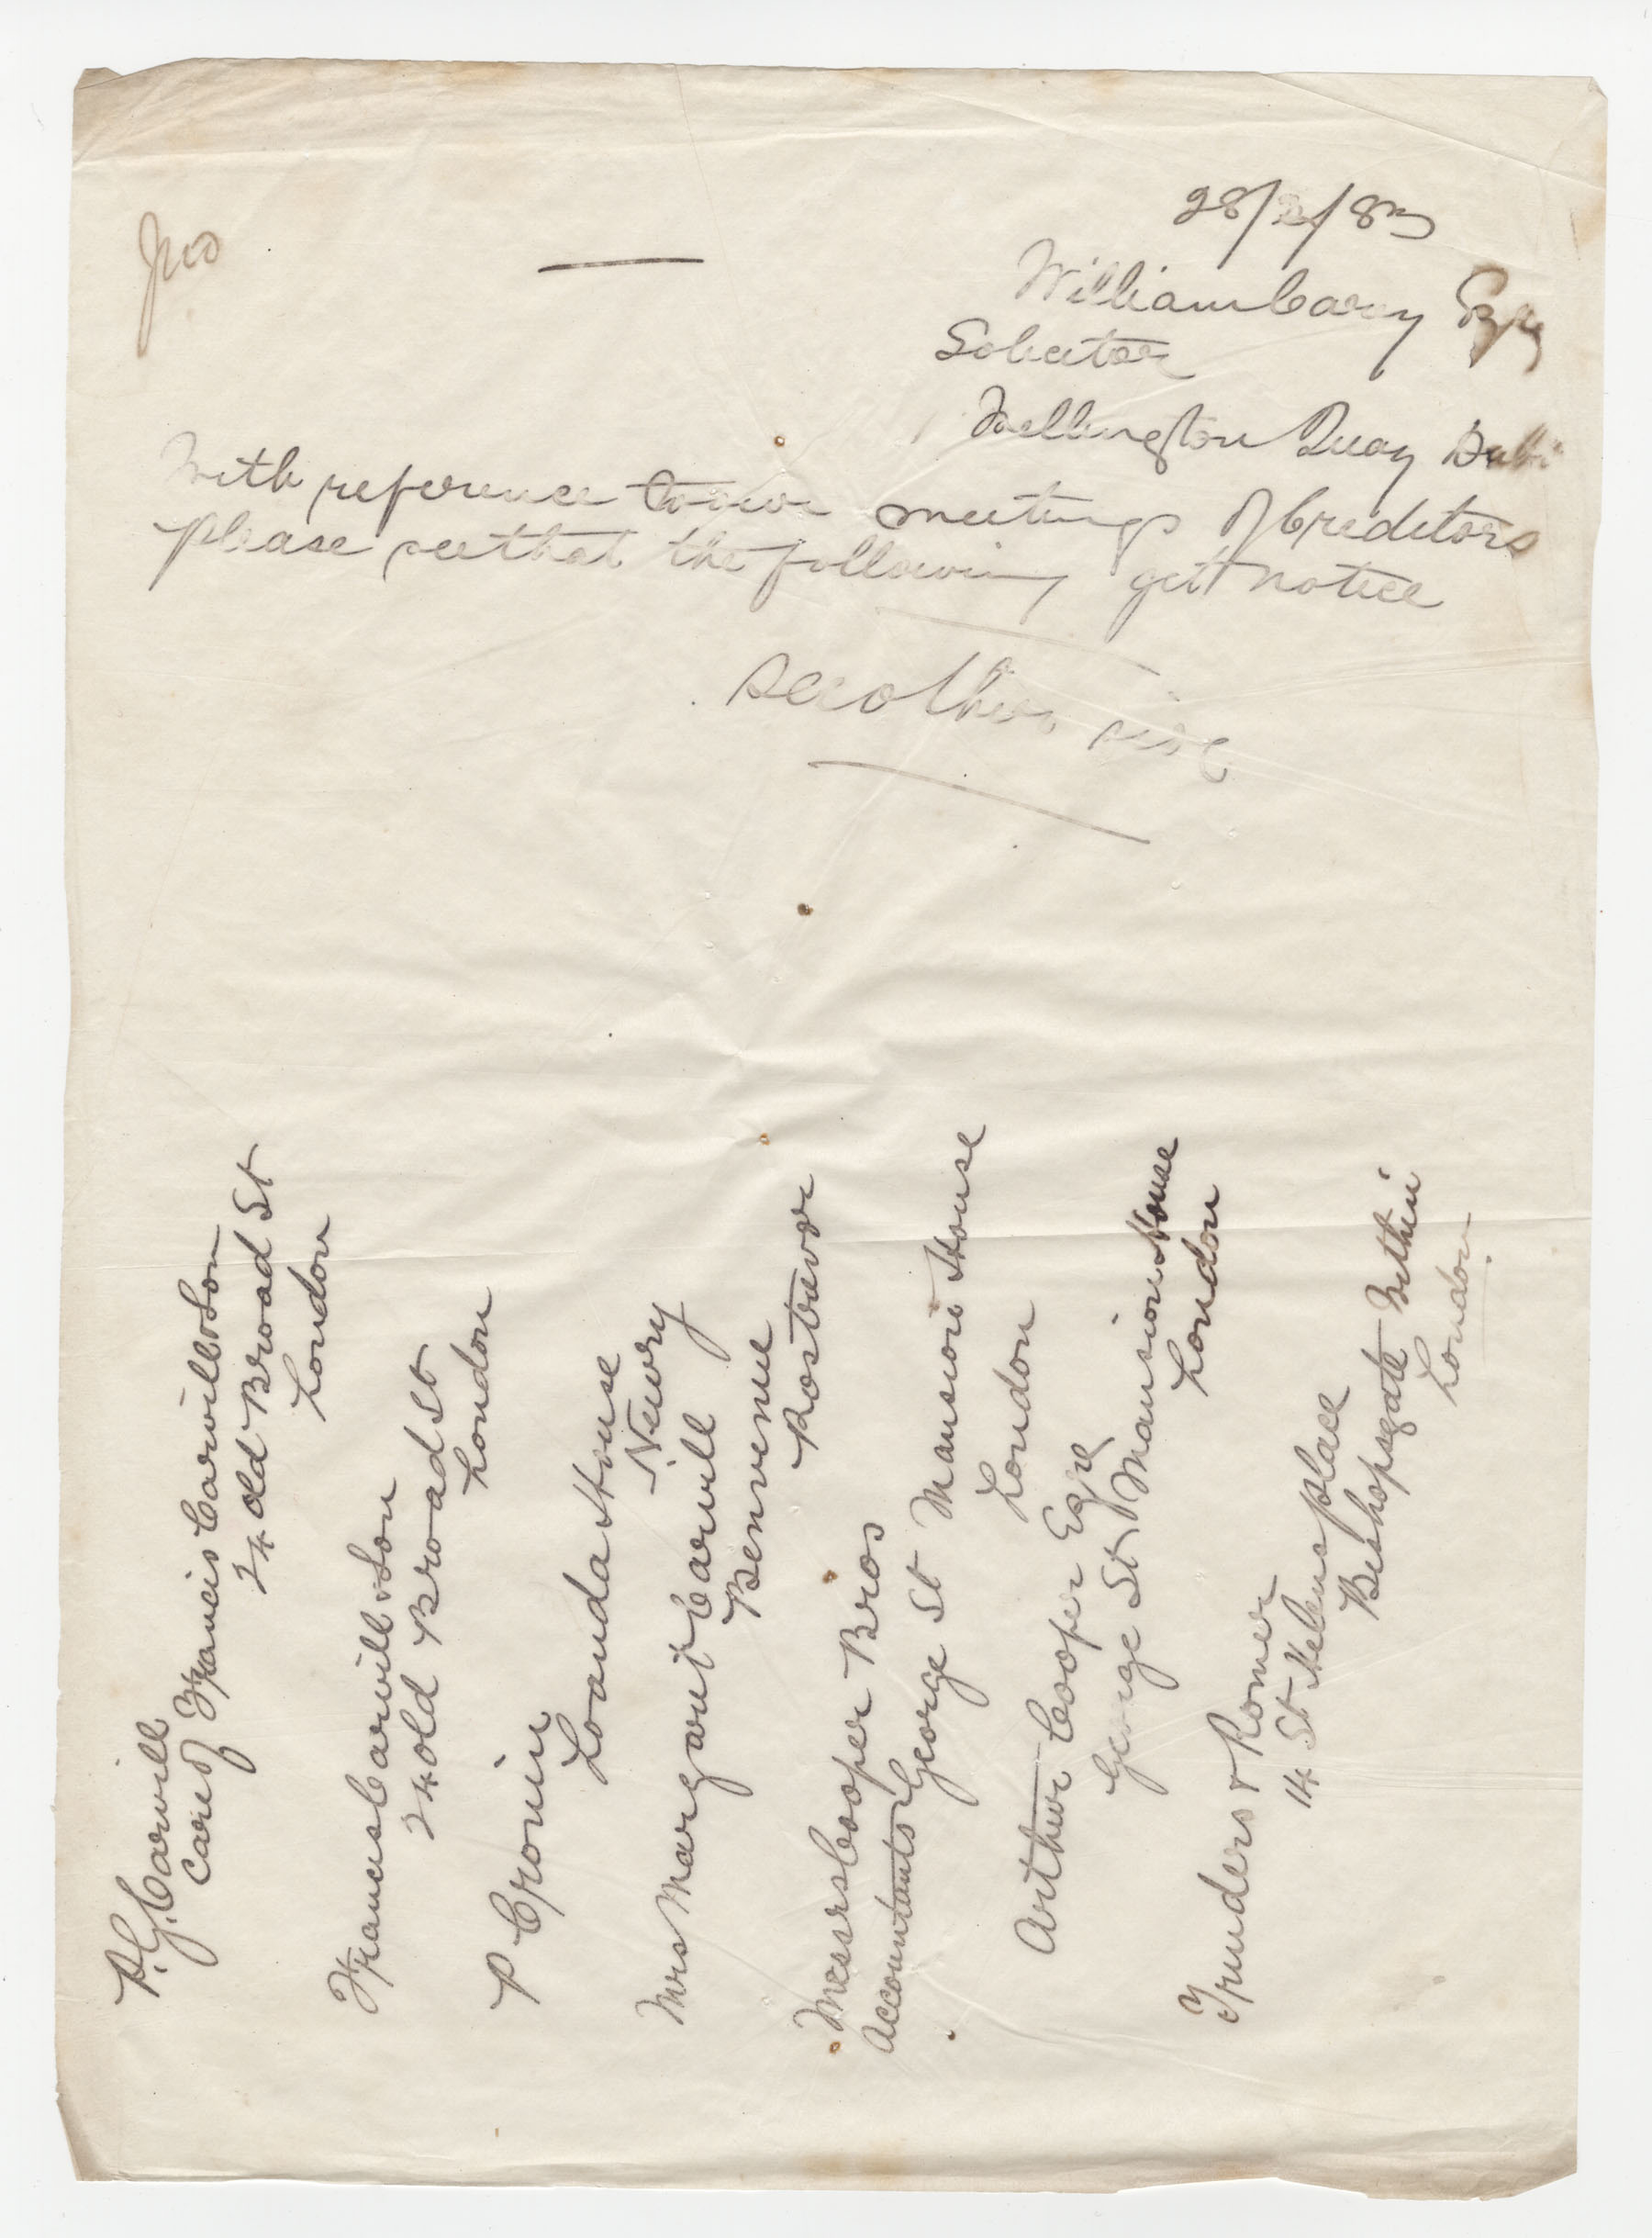 28/2/83
William Carey Esqre
Solicitor
Wellington Quay Dublin
With reference to our meetings of Creditors
please see that the following get notice
see other side
P. G. Carvill
care of Francis Carvill & Son
24 old Broad St
London
Francis Carvill & Son
24 old Broad St
London
P Cronin
Loanda House
Newry
Mrs Margaret Carvill
Benvenue
Rostrevor
Messrs Cooper Bros
Accountants George St Mansion House
London
Arthur Cooper Esqe
George St Mansion House
London
Trinders & Romer
14 St Helens place
Bishopsgate Within
London